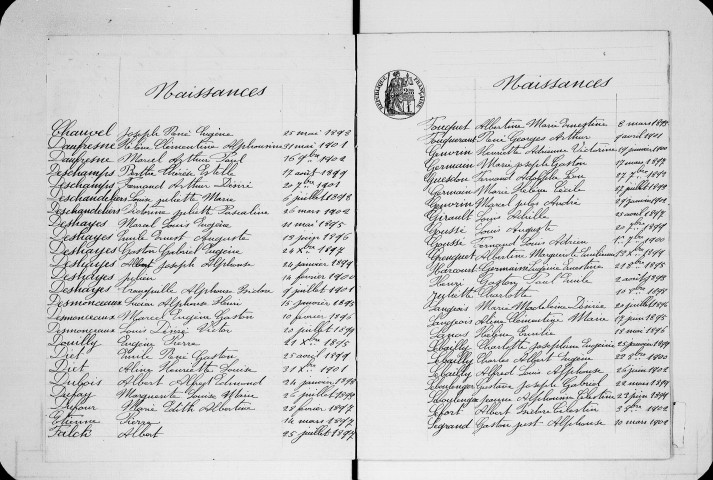 Naissances
Chauvel Joseph René Eugène 25 mai 1893
Daufresne Clémentine Alphonsine 31 mai 1901
Daufresne Marcel Arthur Paul 16 9bre 1902
Deschamps Berthe Estelle 17 août 1899
Deschamps Fernand Arthur Désiré 20 1901
Deschandeliers Louise Juliette Marie 6 juillet 1898
Deschandeliers Juliette Pascaline 26 mars 1902
Deshayes Marcel Louis Eugène 11 mai 1895
Deshayes Emile Ernest Auguste 13 juin 1896
Deshayes Gaston Gabriel Eugène 24 Xbre 1897
Deshayes Albert Joseph Alphonse 24 janvier 1899
Deshayes Julien 14 février 1900
Deshayes Alphonse 9 juillet 1901
Desmonceaux Lucien Alphonse Henri 15 janvier 1895
Desmonceaux Marcel Eugène Gaston 10 février 1896
Desmonceaux Louis Désiré Victor 20 juillet 1899
Douilly Eugène Pierre 21 Xbre 1895
Duet Emile René Gaston 25 avril 1899
Duet Aline Henriette Louise 31 Xbre 1901
Dubois Albert Alfred Edmond 24 janvier
Dufay Marguerite Louise Marie 26 juillet 1899
Dufour Marie Edith Albertine 28 février 1897
Etienne Pierre 14 mars 1897
Falck Albert 25 juillet
REPUBLIQUE FRANÇAISE
Naissances
Foucquet Albertine Marie Ernestine 8 mars
Fouquerant René Georges Arthur 9 avril 1901
Henriette Victorine 19 janvier 1900
Germain Marie Joseph Gaston 17 mars 1897
Adolphe Léon
Germain Marie Hélène Cécile 27 juillet 1899
Marcel Jules André 29 janvier 1902
Girault Louis Achille avril 1897
Goussé Louis Auguste 20 1899
Goussé Fernand Louis Adrien 1900
Albertine Marguerite
Harcourt Germaine Eugénie 21 1895
Henry Gaston Paul Emile 2 avril
Juliette Charlotte
Langlois Marie Madeleine Désirée 20 juillet 1896
Langlois Aline Clémentine Marie 17 juin 1895
Hélène Emilie 18 mai 1896
Lebailly Charlotte Joséphine Eugénie 25 janvier 1899
Lebailly Charles Albert Eugène 22 1900
Lebailly Alfred Louis Alphonse 26 juin 1902
Leboulenger Gustave Joseph Gabriel 22 mars 1899
Leboulenger Alphonsine Célestine 23 juin 1899
Lefort Albert Célestin 3 1902
Legrand Gaston Alphonse 10 mars 1902